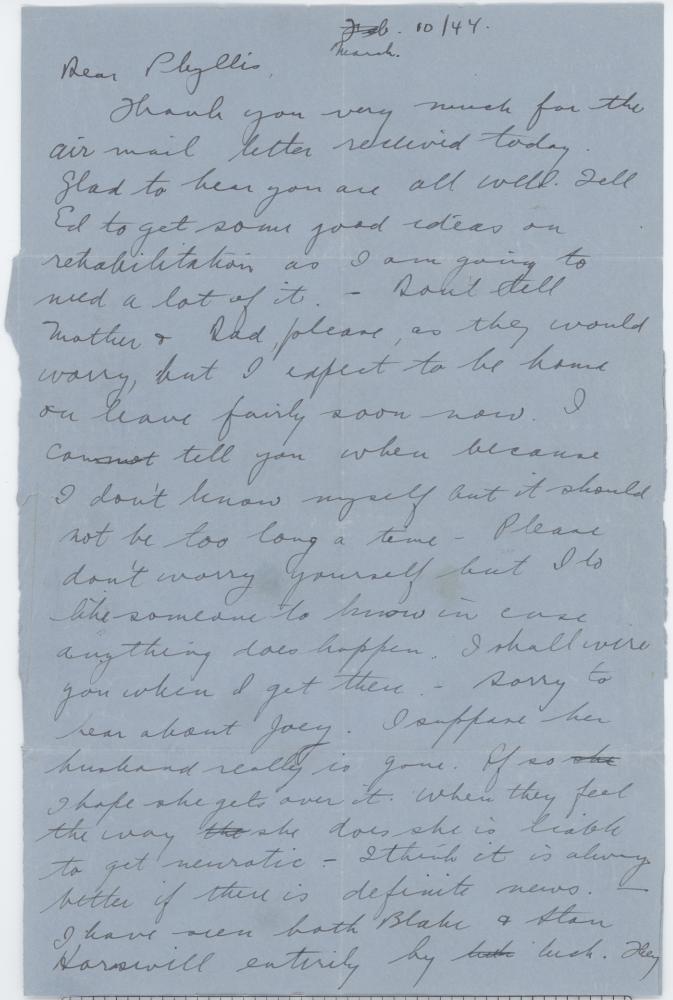 Feb. 10/44.
March.
Dear Phyllis,
Thank you very much for the
air mail letter received today.
Glad to hear you are all well. Tell
Ed to get some good ideas on
rehabilitation as I am going to
need a lot of it. - Don't tell
Mother & Dad, please, as they would
worry, but I expect to be home
on leave fairly soon now. I
cannot tell you when because
I don't know myself but it should
not be too long a time - Please
don't worry yourself but I do
like someone to know in case
anything does happen. I shall wire
you when I get there. - Sorry to
hear about Joey. I suppose her
husband really is gone. If so she
I hope she gets over it. When they feel
the way the she does she is liable
to get neurotic - I think it is always
better if there is definite news. -
I have seen both Blake & Stan
Horswill entirely by luck. They